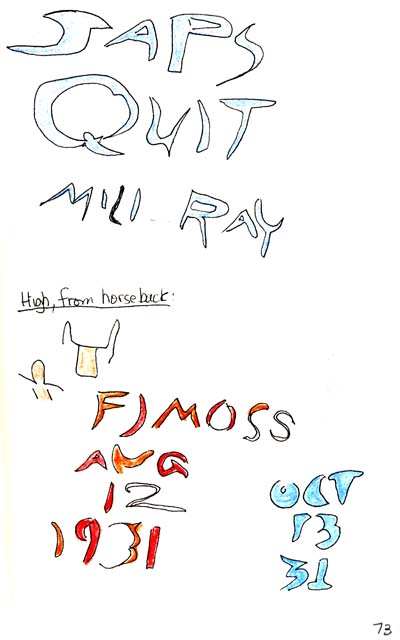 JAPS
QUIT
MILI RAY
High, from horseback:
FJ MOSS
AUG
12
1931
OCT
13
31
73